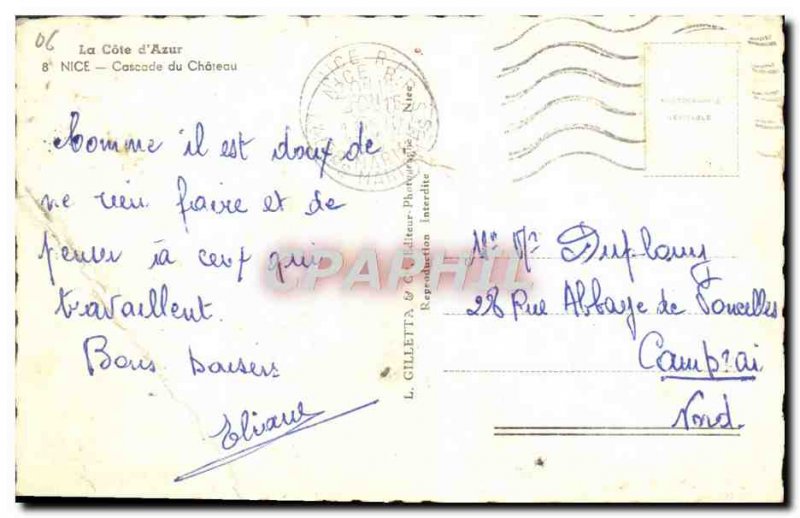 06
La Côte d'Azur
8 NICE — Cascade du Château
Comme il est doux de
ne rien faire et de
penser à ceux qui
travaillent.
Bons baisers
Eliane
L. GILLETTA & Cie, Editeur-Photographe, Nice
Reproduction Interdite
NICE R.P.
CPARAPHIL
PHOTOGRAPHIE
VÉRITABLE
Mr Mr Duflouy
28 Rue Abbaye de Vancelles
Cambrai
Nord.